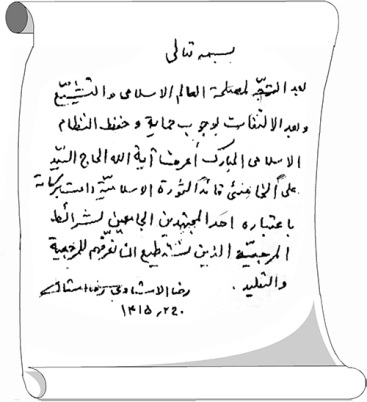 بسمه تعالی
بعد التوجّه لمصلحة العالم الاسلامی والتشیّع
وبعد الالتفات لوجوب حمایة و حفظ النظام
الاسلامی المبارک أعرف آیة الله الحاج السیّد
علی الخامنئی قائد الثورة الاسلامیّة دامت برکاته
باعتباره احد المجتهدین الجامعین لشرائط
المرجعیّة الذین نستطیع ان نعرّفهم للمرجعیة
والتقلید.
رضا الاستادی